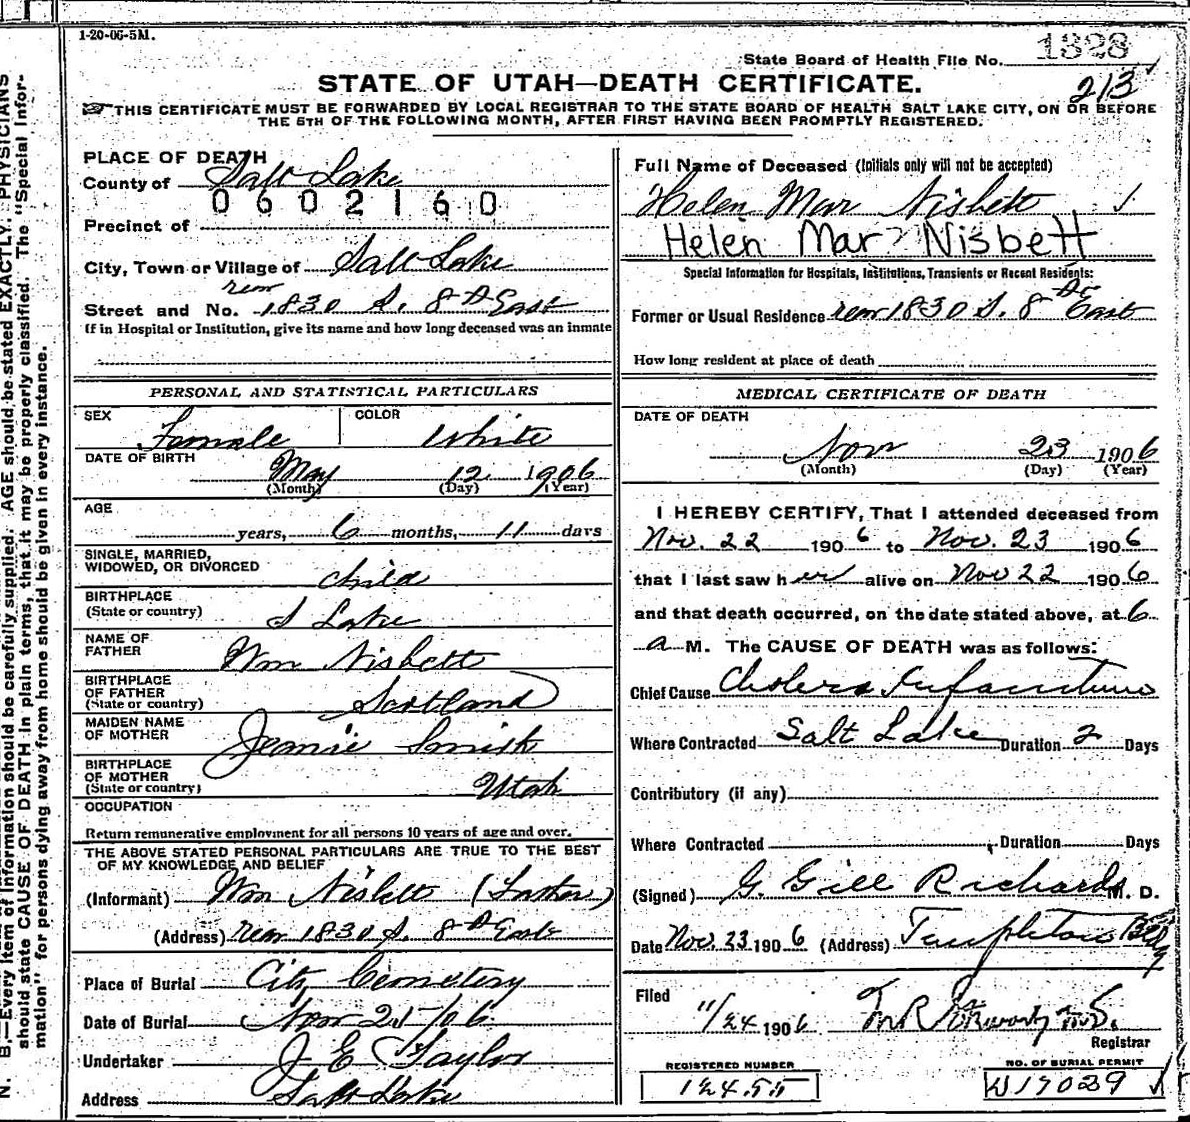 1-20-06-5M.
State Board of Health File No. 1328
213
STATE OF UTAH—DEATH CERTIFICATE.
THIS CERTIFICATE MUST BE FORWARDED BY LOCAL REGISTRAR TO THE STATE BOARD OF HEALTH SALT LAKE CITY, ON OR BEFORE
THE 5TH OF THE FOLLOWING MONTH, AFTER FIRST HAVING BEEN PROMPTLY REGISTERED.
PLACE OF DEATH
County of Salt Lake
0602160
Precinct of
City, Town or Village of Salt Lake
Street and No. rear 1830 S. 8th East
If in Hospital or Institution, give its name and how long deceased was an inmate
Full Name of Deceased (Initials only will not be accepted)
Helen Mar Nisbett
Helen Mar? Nisbett
Special Information for Hospitals, Institutions, Transients or Recent Residents:
Former or Usual Residence rear 1830 S. 8th East
How long resident at place of death
PERSONAL AND STATISTICAL PARTICULARS
SEX Female COLOR White
DATE OF BIRTH May 12 1906
(Month) (Day) (Year)
AGE
years, 6 months, 11 days
SINGLE, MARRIED,
WIDOWED, OR DIVORCED child
BIRTHPLACE
(State or country) S Lake
NAME OF
FATHER Wm Nisbett
BIRTHPLACE
OF FATHER
(State or country) Scotland
MAIDEN NAME
OF MOTHER Jeanie Smith
BIRTHPLACE
OF MOTHER
(State or country) Utah
OCCUPATION
Return remunerative employment for all persons 10 years of age and over.
THE ABOVE STATED PERSONAL PARTICULARS ARE TRUE TO THE BEST
OF MY KNOWLEDGE AND BELIEF
(Informant) Wm Nisbett (Father)
(Address) rear 1830 S. 8th East
Place of Burial City Cemetery
Date of Burial Nov 25/06
Undertaker J E Taylor
Address Salt Lake
MEDICAL CERTIFICATE OF DEATH
DATE OF DEATH
Nov 23 1906
(Month) (Day) (Year)
I HEREBY CERTIFY, That I attended deceased from
Nov. 22 1906 to Nov. 23 1906
that I last saw her alive on Nov 22 1906
and that death occurred, on the date stated above, at 6
a M. The CAUSE OF DEATH was as follows:
Chief Cause Cholera Infantum
Where Contracted Salt Lake Duration 2 Days
Contributory (if any)
Where Contracted Duration Days
(Signed) G. Gill Richards M. D.
Date Nov. 23 1906 (Address) Templeton Bldg
Filed
11/24 1906
Registrar
REGISTERED NUMBER
12455
NO. OF BURIAL PERMIT
W17029
N. B.—Every item of information should be carefully supplied. AGE should be stated EXACTLY. PHYSICIANS
should state CAUSE OF DEATH in plain terms, that it may be properly classified. The "Special Infor-
mation" for persons dying away from home should be given in every instance.